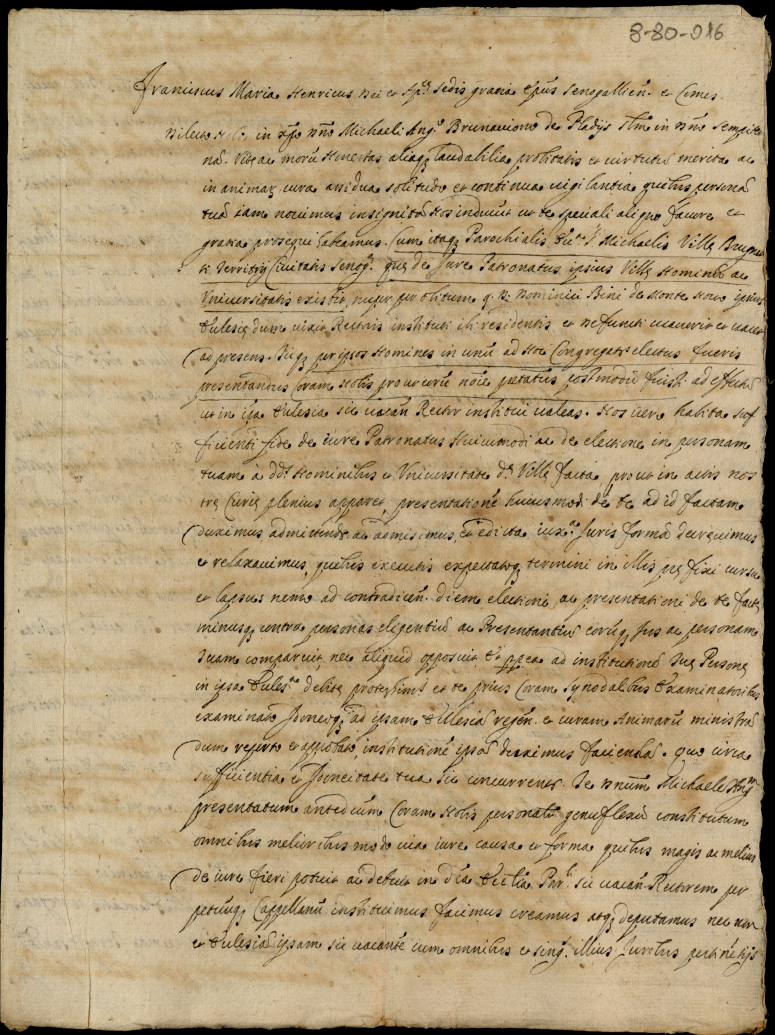 8-80-016
Franciscus Maria Henricus Dei et Ap.cę sedis gracia epũs senogallień. et Comes.
Dilecto Nobis in xp̃o nr̃o Michaeli Ang.o de Pladijs slm̃ in Dño sempiter
nã. Vitę ac morũ Honestas aliaq; laudabilia probitatis et virtutũ merita ac
in animaꝝ cura assidua solitudo et continua vigilantia quibus personã
tuã iam novimus insignitã Nos inducũt ut te speciali aliquo favore et
gratia prosequi debeamus. Cum itaq; Parochialis S. Michaelis Villę Brugnet
ti Territorij Civitatis Senog.ę quę de Jure Patronatus ipsius Villę Hominũ ac
Universitatis existit, nuper per obitum q. D. Dominici Bini de Monte Novo ipsius
Eclesię dum vixit Rectoris instituti ibi residentis et defuncti vacaverit et vacet
ad presens. Tuq; per ipsos Homines in unũ ad Hoc Congregatos electus fueris
presentandus Coram Nobis pro ut corũ nõie postmodũ fuisti ad effectũ
ut in ipsa Eclesia sic vacań. Rector institui valeas. Nos vero habita suf
ficienti fide de iure Patronatus Huiusmodi ac de electione in personam
tuam à dd.s Hominibus et Universitate d.ę Villę facta, pro ut in actis nos
trę Curię plenius apparet, presentationẽ huiusmodi de te ad id factam
duximus admictendã ac admisimus, et edicta iux.a Juris formã decrevimus
et relaxavimus, quibus executis expectatoq; termini in illis pręfixi cursu
et lapsu, nemo ad contradicen. diem electioni ac presentationi de te factę
minusq; contra personas eligentiũ ac Presentantiũ eorũq; Jus ac personam
tuam comparuit, nec aliquid opposuit Et pp̃ea ad institutionẽ Tuę Personę
in ipsa Eules.a debite et te prius Coram Synodalibus Examinatoribus
examinato Idoneoq; ad ipsam Eclesiã regeń. et curam Animarũ ministrã
dum reperto et approbato, institutionẽ ipsã duximus faciendã. quo circa
sufficientia et Idoneitate tua sic concurrente. Te Dnum Michaele Ang.m
presentatum antedictum Coram Nobis personalr̃ genuflexũ constitutum
omnibus melioribus modo via iure causa et forma quibus magis ac melius
de iure fieri potuit ac debuit in d̃ta Eccl̃ia Par.li sic vacań. Rectorem per
petuuq; Cappellanũ instituimus facimus creamus atq; deputamus nec non
et Eclesiã ipsam sic vacantẽ cum omnibus et sing.s illius Juribus pertinẽtijs